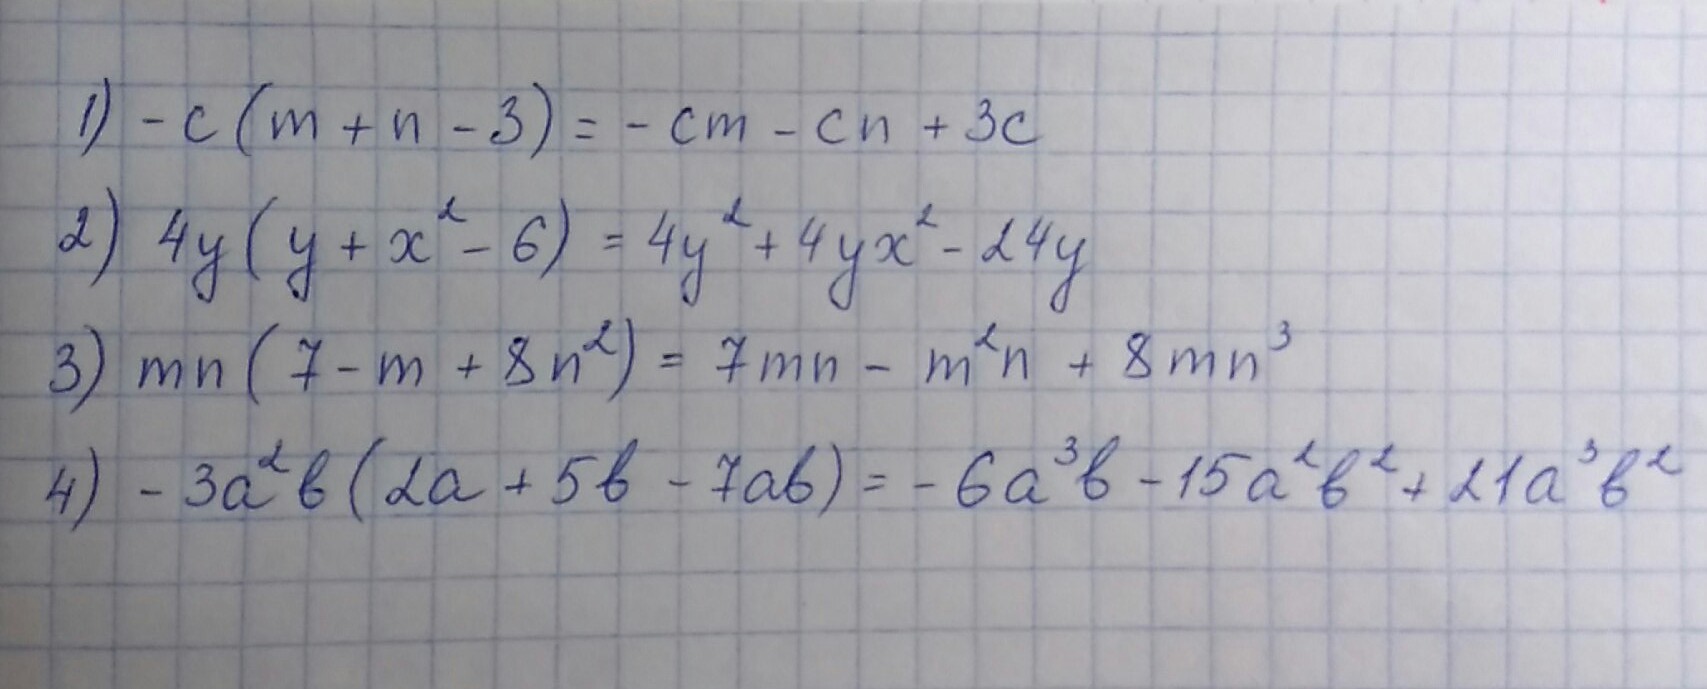 1) -c(m+n-3)=-cm-cn+3c
2) 4y(y+x²-6)=4y²+4yx²-24y
3) mn(7-m+8n²)=7mn-m²n+8mn³
4) -3a²b(2a+5b-7ab)=-6a³b-15a²b²+21a³b²